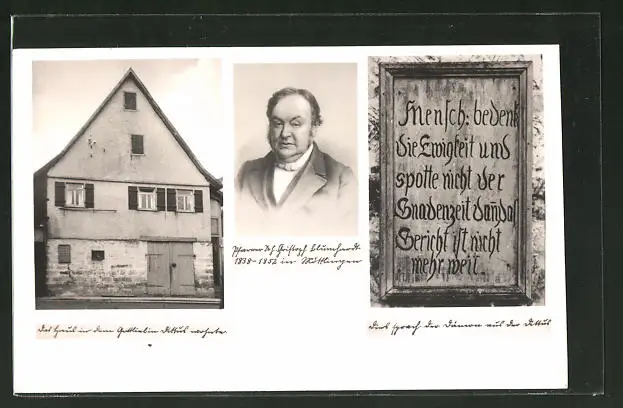 Das Haus in dem Gottliebin Dittus wohnte.
Pfarrer Joh. Christoph Blumhardt.
1838-1852 in Möttlingen
Mensch: bedenk
die Ewigkeit und
spotte nicht der
Gnadenzeit dan̄ das
Gericht ist nicht
mehr weit.
Dies sprach der Dämon aus der Dittus